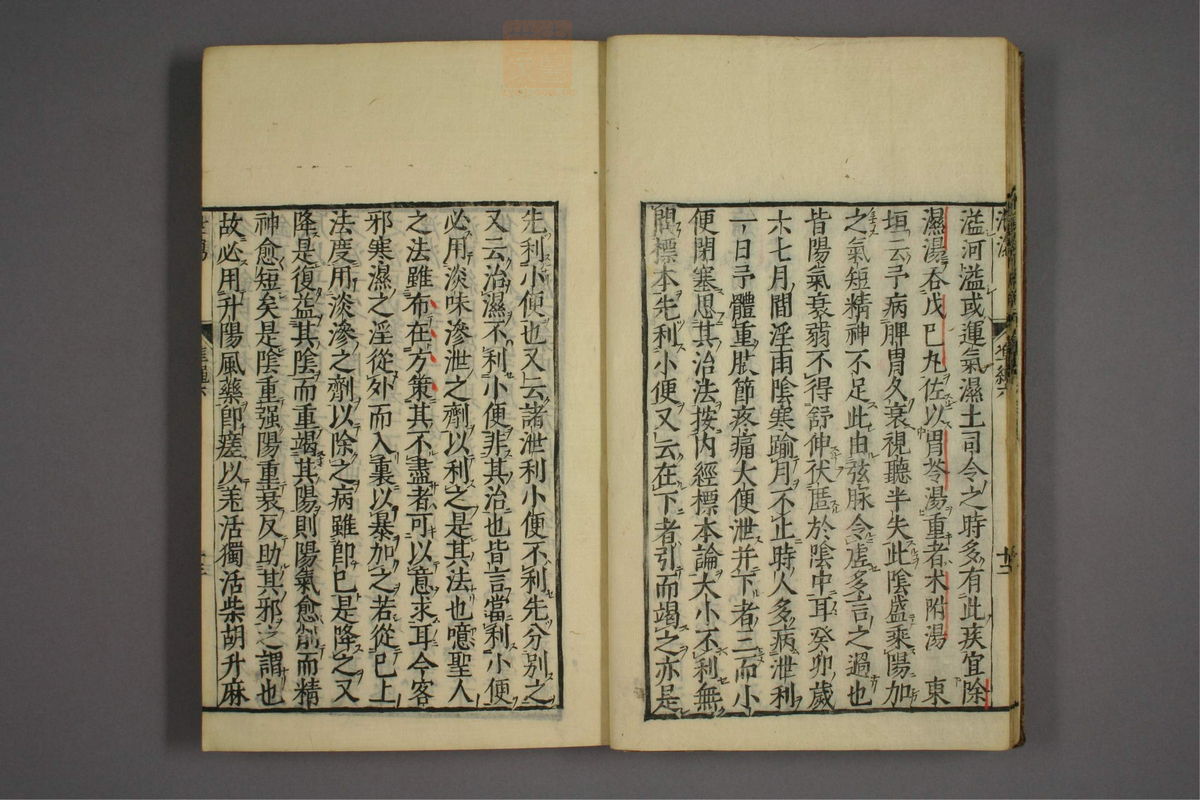 溢河溢或運氣濕土司令之時多有此疾宜除
濕湯吞戊巳丸佐以胃苓湯重者术附湯　東
垣云予病脾胃久衰視聽半失此陰盛乘陽加
之氣短精神不足此由弦脉令虛多言之過也
皆陽氣衰弱不得舒伸伏匿於陰中耳癸卯歲
六七月間淫雨陰寒踰月不止時人多病泄利
一日予體重肢節疼痛大便泄并下者三而小
便閉塞思其治法按内經標本論大小不利無
問標本先利小便又云在下者引而竭之亦是
先利小便也又云諸泄利小便不利先分別之
又云治濕不利小便非其治也皆言當利小便
必用淡味滲泄之劑以利之是其法也噫聖人
之法雖布在方策其不盡者可以意求耳今客
邪寒濕之淫從外而入裏以暴加之若從巳上
法度用淡滲之劑以除之病雖卽巳是降之又
降是復益其陰而重竭其陽則陽氣愈削而精
神愈短矣是陰重强陽重衰反助其邪之謂也
故必用升陽風藥卽瘥以羌活獨活柴胡升麻